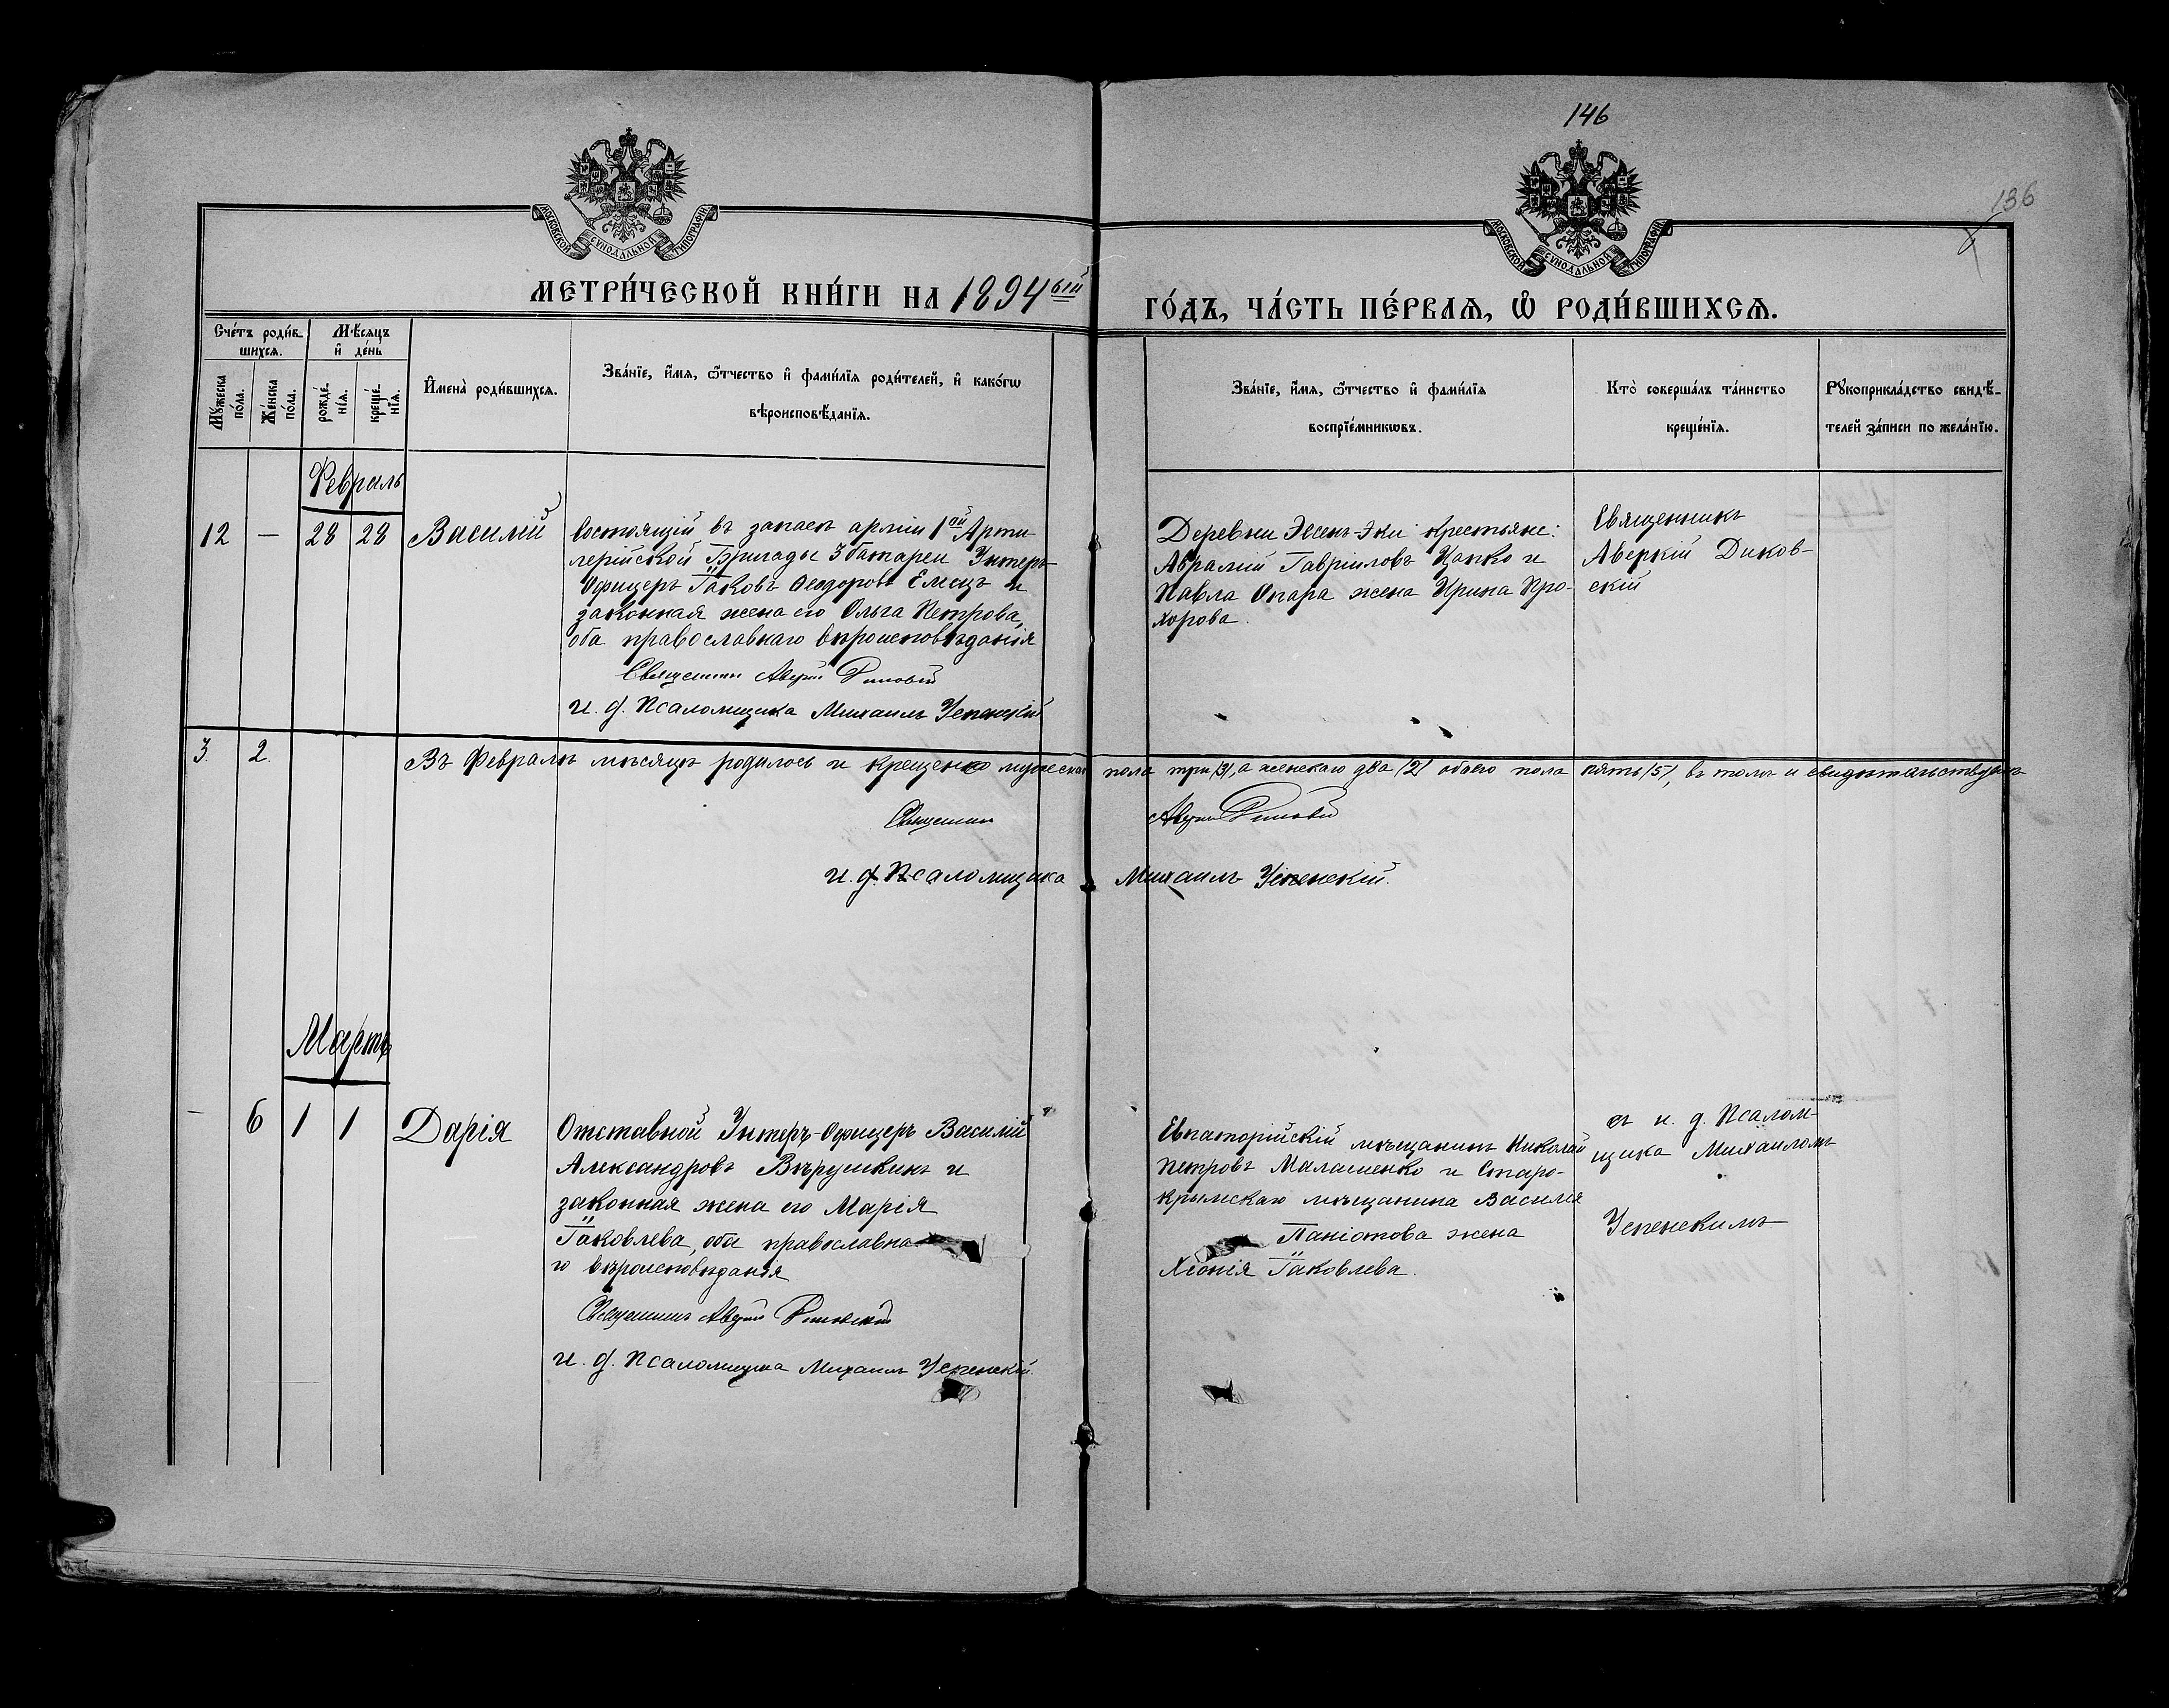 146
136
МОСКОВСКОЙ СУНОДАЛЬНОЙ ТИПОГРАФІИ
МОСКОВСКОЙ СУНОДАЛЬНОЙ ТИПОГРАФІИ
МЕТРИ́ЧЕСКОЙ КНИ́ГИ НА 1894ый
ГО́ДЪ, ЧА́СТЬ ПЕ́РВАѦ, Ѡ РОДИ́ВШИХСѦ.
Сче́тъ роди́в-
шихсѧ.
Мѣ́сѧцъ
и҆ де́нь
Мꙋ́жеска
по́ла.
Же́нска
по́ла.
рожде́-
нїѧ.
креще́-
нїѧ.
И҆мена̀ роди́вшихсѧ.
Зва́нїе, и҆́мѧ, ѻ҆́тчество и҆ фами́лїѧ роди́телей, и҆ како́гѡ
вѣроисповѣ́данїѧ.
Зва́нїе, и҆́мѧ, ѻ҆́тчество и҆ фами́лїѧ
воспрїе́мникѡвъ.
Кто̀ соверша́лъ та́инство
креще́нїѧ.
Рꙋкоприкла́дство свидѣ́-
телей за́писи по жела́нїю.
Февраль
12 — 28 28 Василій
Состоящій въ запасѣ арміи 1ой Арти-
лерійской Бригады 3 батареи Унтеръ-
Офицеръ Іаковъ Ѳеодоровъ Елецъ и
законная жена его Ольга Петрова,
оба православнаго вѣроисповѣданія
Священникъ Аверкій Диковскій
И. д. Псаломщика Михаилъ Успенскій
Деревни Эсенъ-Эки крестьяне:
Аврамій Гавріиловъ Цапко и
Павла Опара жена Ирина Про-
хорова.
Священникъ
Аверкій Диков-
скій
3. 2. Въ Февралѣ мѣсяцѣ родилось и крещено мужескаго пола три /3/, а женскаго два /2/ обоего пола пять /5/, въ томъ и свидѣтельствуемъ
Священникъ Аверкій Диковскій
И. д. Псаломщика Михаилъ Успенскій.
Мартъ
— 6 1 1 Дарія
Отставной Унтеръ-Офицеръ Василій
Александровъ Вѣрушкинъ и
законная жена его Марія
Іаковлева, оба православна-
го вѣроисповѣданія
Священникъ Аверкій Диковскій
И. д. Псаломщика Михаилъ Успенскій.
Евпаторійскій мѣщанинъ Николай
Петровъ Малашенко и Старо-
крымскаго мѣщанина Василія
Паніотова жена
Хіонія Іаковлева.
съ и. д. Псалом-
щика Михаиломъ
Успенскимъ